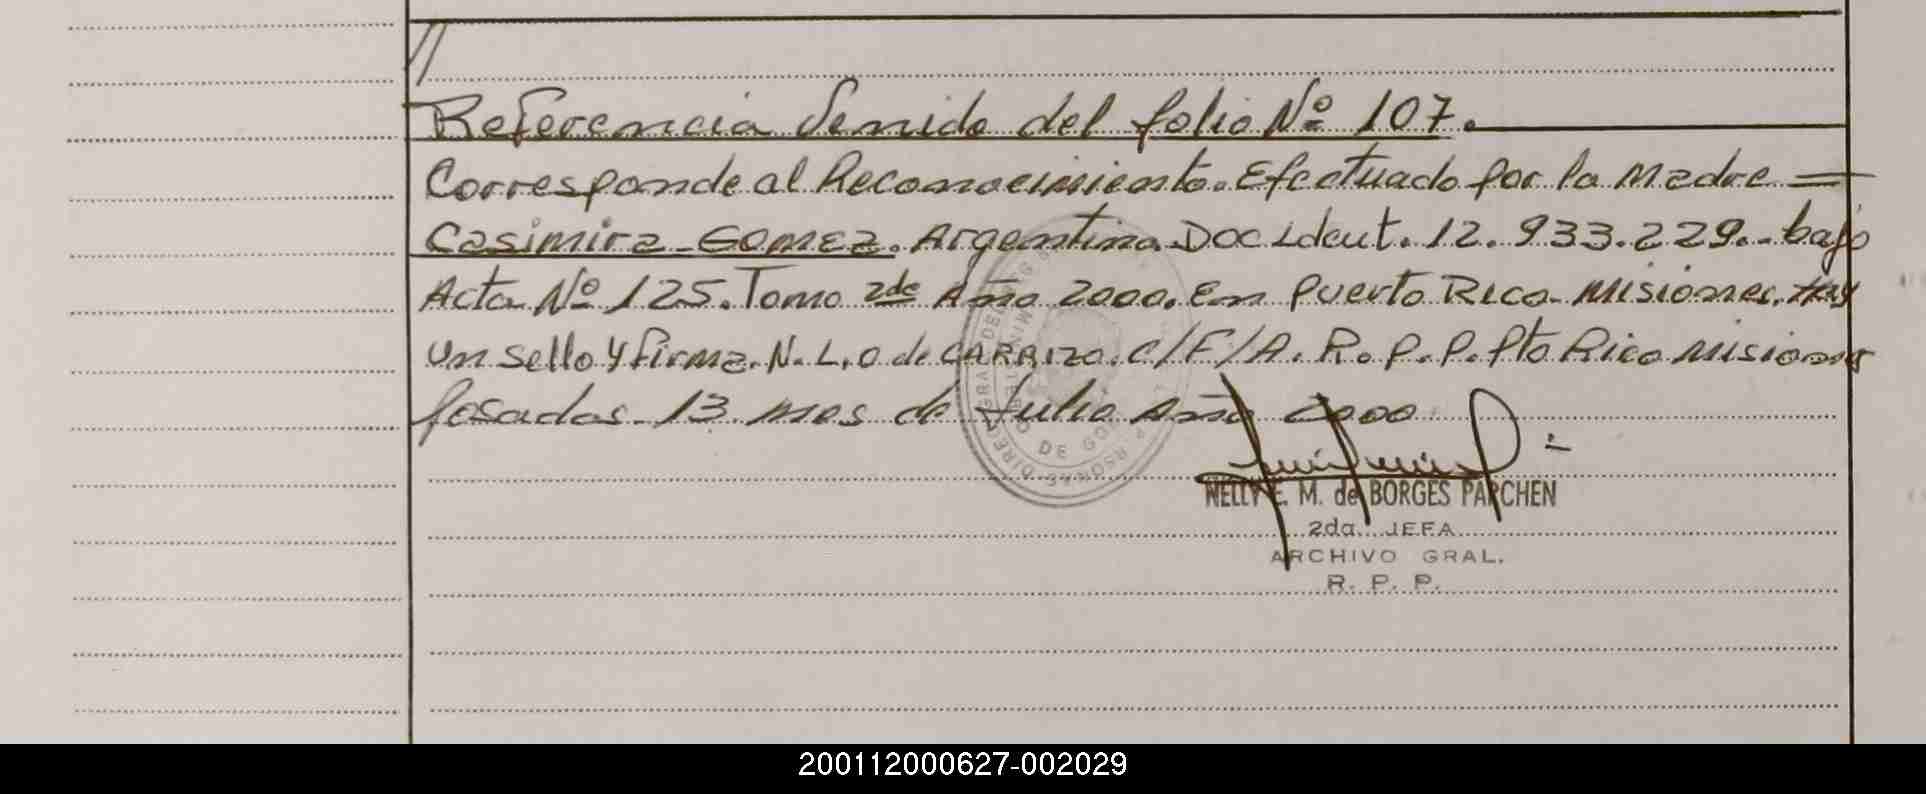 //
Referencia Venida del folio Nº 107.
Corresponde al Reconocimiento. Efectuado por la Madre =
Casimira Gomez. Argentina. Doc Ident. 12.933.229.- bajo
Acta Nº 125. Tomo 2do Año 2000. En Puerto Rico - Misiones. Hay
un sello y firma. N. L. O de CARRIZO. C/F/A. R. P. P. Pto Rico Misiones
Posadas 13 mes de Julio Año 2000
NELLY E. M. de BORGES PARCHEN
2da. JEFA
ARCHIVO GRAL.
R. P. P.
200112000627-002029